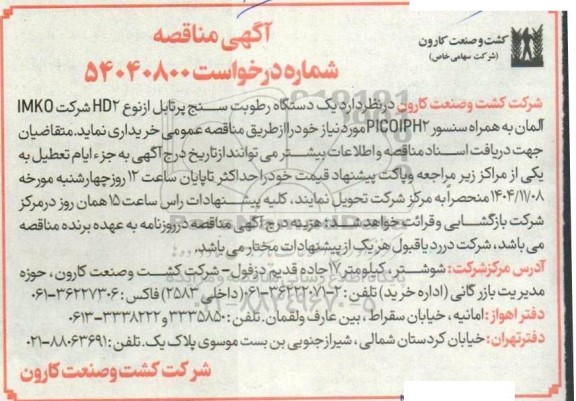 کشت و صنعت کارون
(شرکت سهامی خاص)
آگهی مناقصه
شماره درخواست ۵۴۰۴۰۸۰۰
شرکت کشت و صنعت کارون در نظر دارد یک دستگاه رطوبت سنج پرتابل از نوع HD۲ شرکت IMKO
آلمان به همراه سنسور PICOIPH۲ مورد نیاز خود را از طریق مناقصه عمومی خریداری نماید. متقاضیان
جهت دریافت اسناد مناقصه و اطلاعات بیشتر می توانند از تاریخ درج آگهی به جزء ایام تعطیل به
یکی از مراکز زیر مراجعه و پاکت پیشنهاد قیمت خود را حداکثر تا پایان ساعت ۱۲ روز چهارشنبه مورخه
۱۴۰۴/۱۱/۰۸ منحصراً به مرکز شرکت تحویل نمایند، کلیه پیشنهادات راس ساعت ۱۵ همان روز در مرکز
شرکت بازگشایی و قرائت خواهد شد. هزینه درج آگهی مناقصه در روزنامه به عهده برنده مناقصه
می باشد، شرکت در رد یا قبول هر یک از پیشنهادات مختار می باشد.
آدرس مرکز شرکت: شوشتر، کیلومتر ۱۷ جاده قدیم دزفول - شرکت کشت و صنعت کارون، حوزه
مدیریت بازرگانی (اداره خرید) تلفن: ۲-۳۶۲۲۲۰۷۱-۰۶۱ (داخلی ۲۵۸۳) فاکس: ۳۶۲۲۷۳۰۶-۰۶۱
دفتر اهواز: امانیه، خیابان سقراط، بین عارف و لقمان. تلفن: ۳۳۳۵۸۵۰ و ۳۳۳۸۲۲۲-۰۶۱۳
دفتر تهران: خیابان کردستان شمالی، شیراز جنوبی بن بست موسوی پلاک یک. تلفن: ۸۸۰۶۳۶۹۱-۰۲۱
شرکت کشت و صنعت کارون